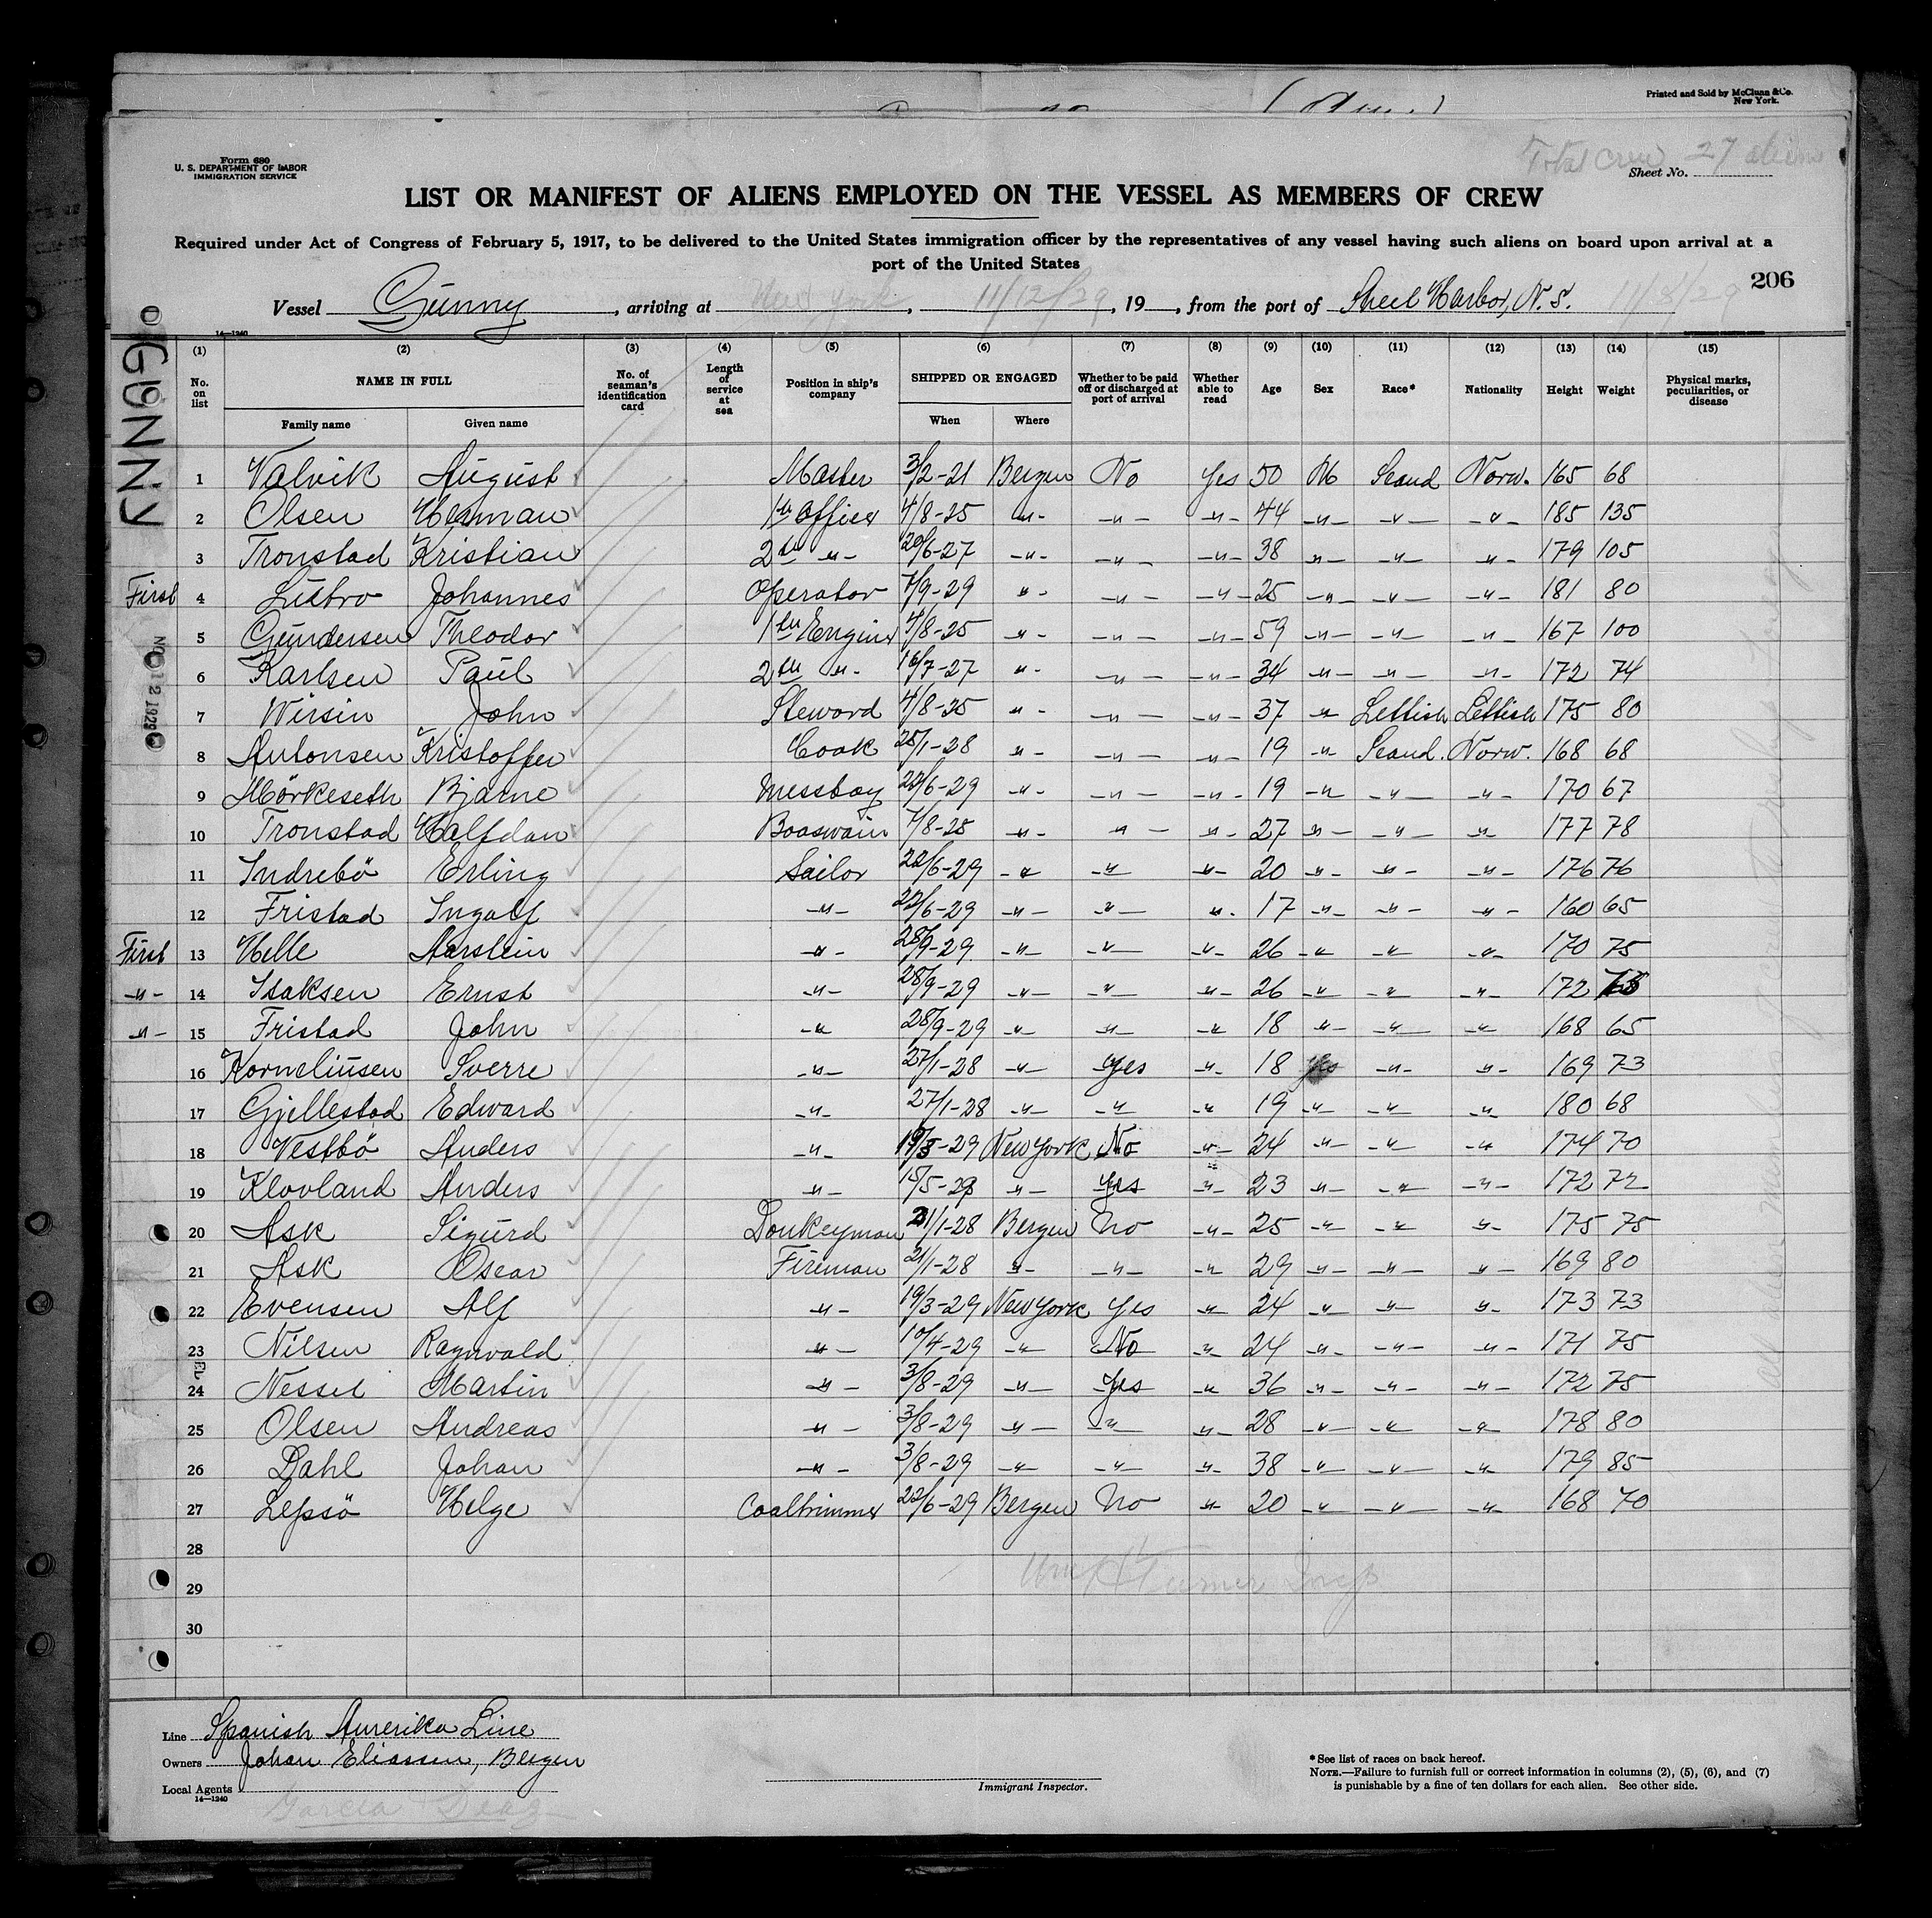 Printed and Sold by McClunn & Co.
New York.
Form 680
U. S. DEPARTMENT OF LABOR
IMMIGRATION SERVICE
Total crew 27 aliens
Sheet No.
LIST OR MANIFEST OF ALIENS EMPLOYED ON THE VESSEL AS MEMBERS OF CREW
Required under Act of Congress of February 5, 1917, to be delivered to the United States immigration officer by the representatives of any vessel having such aliens on board upon arrival at a
port of the United States
206
Vessel Gunny, arriving at New York, 11/12/29, 19, from the port of Sheet Harbor, N.S. 11/8/29
14—1240
GUNNY
(1) (2) (3) (4) (5) (6) (7) (8) (9) (10) (11) (12) (13) (14) (15)
No. on list NAME IN FULL Family name Given name No. of seaman's identification card Length of service at sea Position in ship's company SHIPPED OR ENGAGED When Where Whether to be paid off or discharged at port of arrival Whether able to read Age Sex Race* Nationality Height Weight Physical marks, peculiarities, or disease
1 Valvik August Master 3/2-21 Bergen No Yes 50 M Scand Norw. 165 68
2 Olsen Herman 1te Officer 4/8-25 -"- -"- -"- 44 -"- -"- -"- 185 135
3 Tronstad Kristian 2te -"- 20/6-27 -"- -"- -"- 38 -"- -"- -"- 179 105
First 4 Lütbro Johannes Operator 7/9-29 -"- -"- -"- 25 -"- -"- -"- 181 80
5 Gundersen Theodor 1te Engine 4/8-25 -"- -"- -"- 59 -"- -"- -"- 167 100
6 Karlsen Paul 2te -"- 16/7-27 -"- -"- -"- 34 -"- -"- -"- 172 74
7 Wirsin John Steward 4/8-25 -"- -"- -"- 37 -"- Lettish Lettish 175 80
8 Antonsen Kristoffer Cook 25/1-28 -"- -"- -"- 19 -"- Scand. Norw. 168 68
9 Mörkeseth Bjarne Messboy 22/6-29 -"- -"- -"- 19 -"- -"- -"- 170 67
10 Tronstad Halfdan Boaswain 7/8-25 -"- -"- -"- 27 -"- -"- -"- 177 78
11 Indrebö Erling Sailor 22/6-29 -"- -"- -"- 20 -"- -"- -"- 176 76
12 Fristad Ingolf -"- 22/6-29 -"- -"- -"- 17 -"- -"- -"- 160 65
First 13 Helle Aarstein -"- 28/9-29 -"- -"- -"- 26 -"- -"- -"- 170 75
-"- 14 Isaksen Ernst -"- 28/9-29 -"- -"- -"- 26 -"- -"- -"- 172
-"- 15 Fristad John -"- 28/9-29 -"- -"- -"- 18 -"- -"- -"- 168 65
16 Korneliusen Sverre -"- 27/1-28 -"- Yes -"- 18 yes -"- -"- 169 73
17 Gjellestad Edward -"- 27/1-28 -"- -"- -"- 19 -"- -"- -"- 180 68
18 Vestbö Anders -"- 19/3-29 New York No -"- 24 -"- -"- -"- 174 70
19 Klovland Anders -"- 15/5-29 -"- Yes -"- 23 -"- -"- -"- 172 72
20 Ask Sigurd Donkeyman 21/1-28 Bergen No -"- 25 -"- -"- -"- 175 75
21 Ask Oscar Fireman 21/1-28 -"- -"- -"- 29 -"- -"- -"- 169 80
22 Evensen Alf -"- 19/3-29 New York Yes -"- 24 -"- -"- -"- 173 73
23 Nilsen Ragnvald -"- 10/4-29 -"- No -"- 24 -"- -"- -"- 171 75
24 Nessel Martin -"- 3/8-29 -"- Yes -"- 36 -"- -"- -"- 172 75
25 Olsen Andreas -"- 3/8-29 -"- -"- -"- 28 -"- -"- -"- 178 80
26 Dahl Johan -"- 3/8-29 -"- -"- -"- 38 -"- -"- -"- 179 85
27 Lepsö Helge Coaltrimmer 22/6-29 Bergen No -"- 20 -"- -"- -"- 168 70
28
29 Turner Insp
30
NOV 12 1929
Line Spanish Amerika Line
Owners Johan Eliassen, Bergen
Local Agents Garcia Diaz
14—1240
Immigrant Inspector.
*See list of races on back hereof.
NOTE.—Failure to furnish full or correct information in columns (2), (5), (6), and (7)
is punishable by a fine of ten dollars for each alien. See other side.